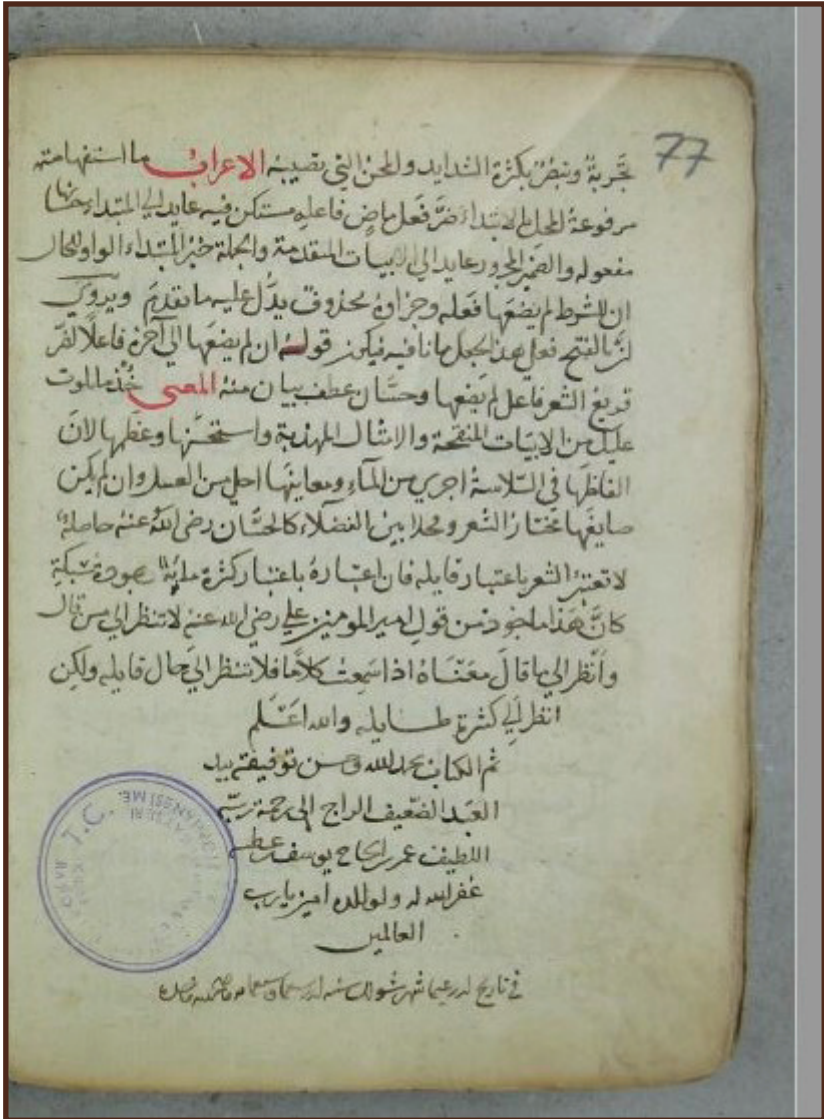 77
تجربةُ وتبصّرٌ بكثرة الشدايد والمحن التي تصيبه الاعراب ما استفهامته
مرفوعة المحل بالابتداء ضرَّ فعل ماضٍ فاعله مستكن فيه عايد الي المبتداء حسّانها
مفعوله والضمير المجرور عايد الي الابيات المتقدمة والجملة خبر المبتداء الواو للحال
ان للشرط لم يضعها فعله وجزاؤه محذوف يدّل عليه ما تقدم ويروي
بالفتح فعلي هذا يجعل ما نافيه فيكون قوله ان لم يضعها الي آخره فاعلًا لضرّ
قريع الشعر فاعل لم يضعها وحسّان عطف بيان منه المعنى خُذ ما تلوت
عليك من الابيات المنقحة والامثال المهذبة واستحسنها وعظّمها لانّ
الفاظها في السّلاسة اجري من الماء ومعاينها احلي من العسل وان لم يكن
صايغها مختار الشعر و بين الفضلاء كالحسّان رضي الله عنه حاصله
لا تعتبر الشعر باعتبار قايله فان اعتباره باعتبار كثرة وجودة سَبكهِ
كانَّ هذا ماخوذ من قول امير المومنين علي رضي الله عنه لا تنظر الي من قال
وانظر الي ما قال معنَاهُ اذا سَمعت كلامًا فلا تنظر الي حال قايله ولكن
انظر الي كثرة طايله والله اعلم
تم الكتاب بحمد الله وحسن توفيقه بيد
العبد الضّعيف الراجي الي رحمة ربّه
اللطيف عمر بن الحاج يوسف
غفر الله له ولوالده امين يا رب
العالمين
في تاريخ شهر شوال سنه
T.C.